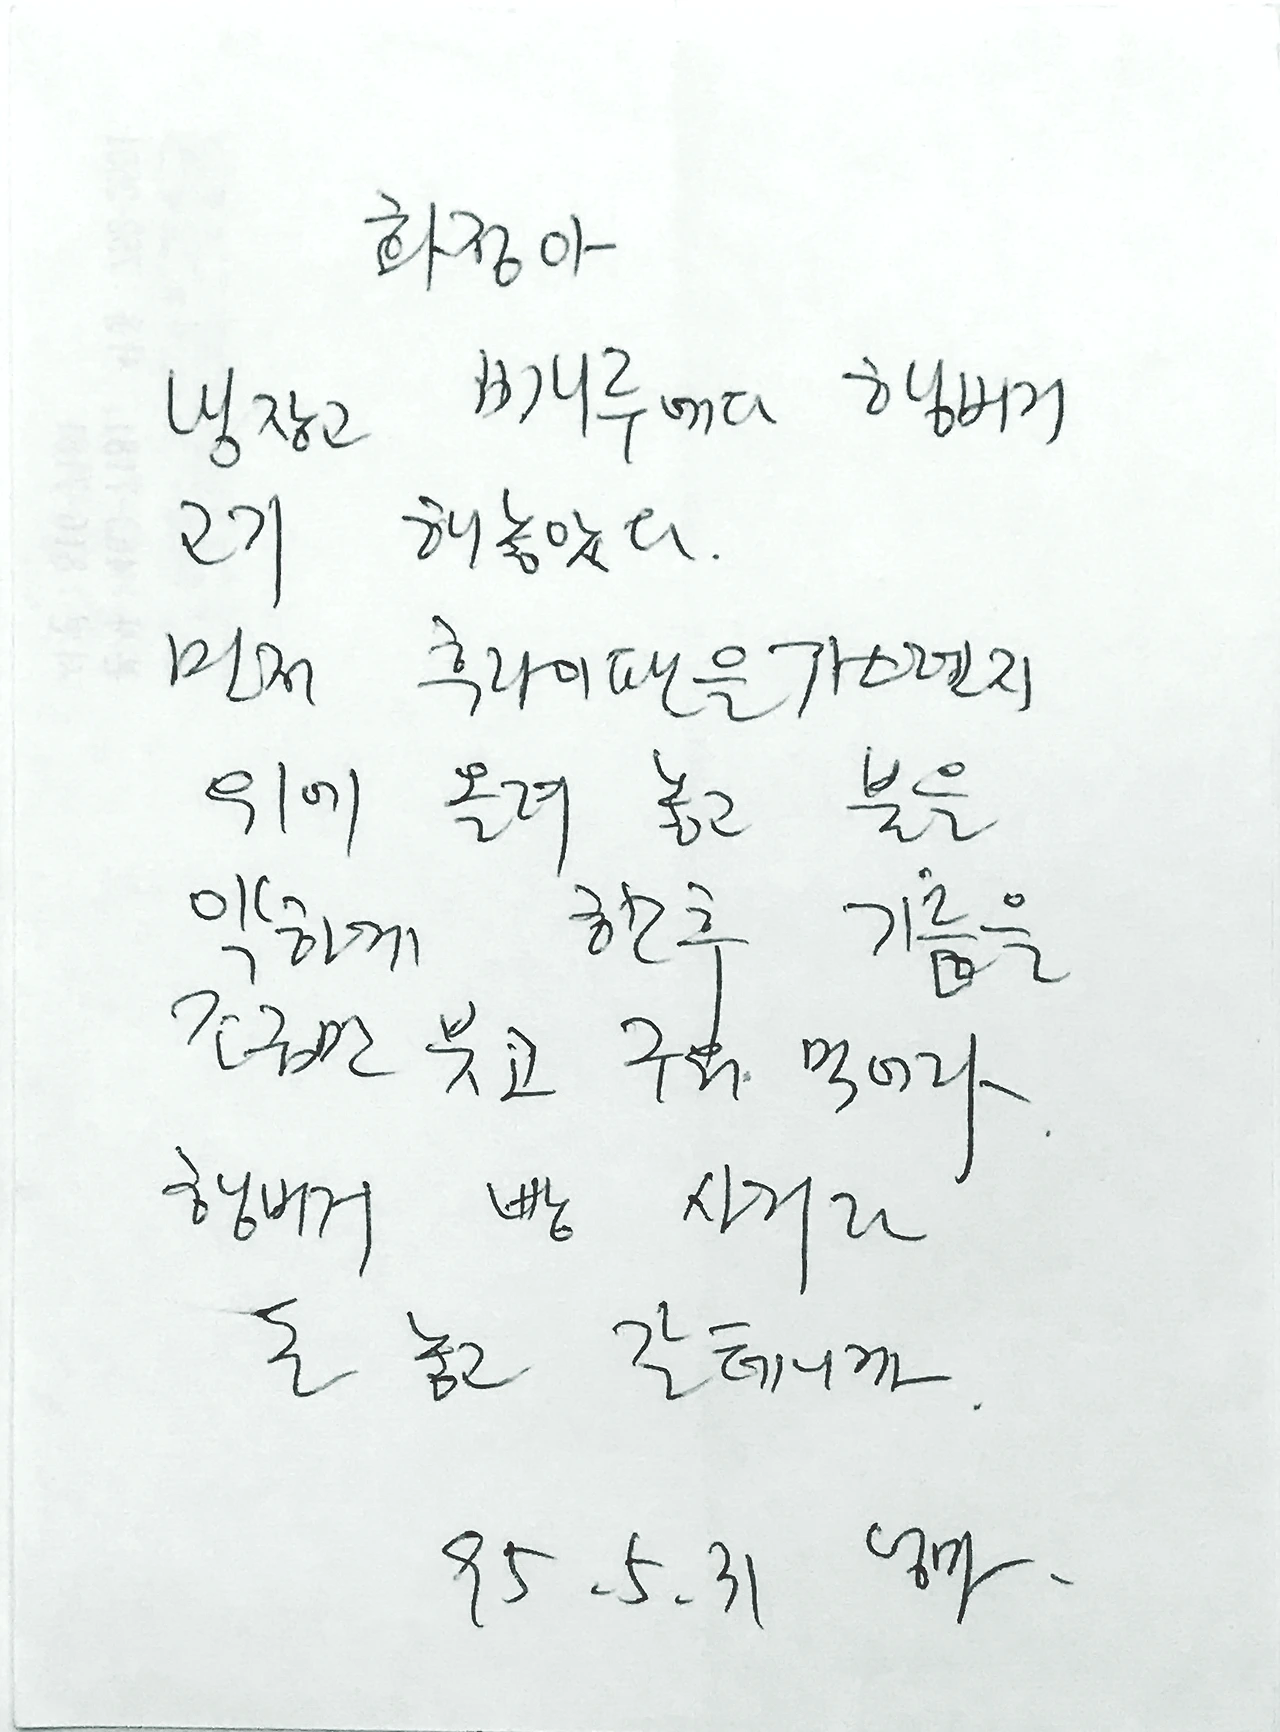 화정아
냉장고 빼니루에다 햄버거
고기 해놓았다.
먼저 후라이팬을 가스렌지
위에 올려 놓고 불을
약하게 한후 기름을
조금만 붓고 구워 먹어라.
햄버거 빵 사게 라
돈 놓고 갈테니까.
95.5.31 엄마.